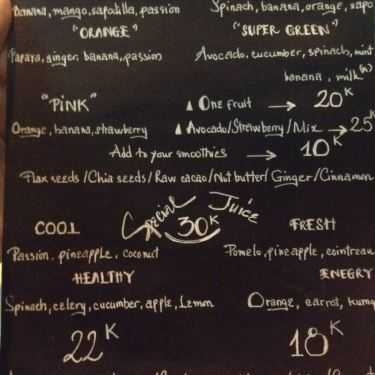 Banana, mango, sapodilla, passion
Spinach, banana, orange, sapo
"ORANGE"
"SUPER GREEN"
Papaya, ginger, banana, passion
Avocado, cucumber, spinach, mint
banana, milk
"PINK"
One fruit → 20K
Orange, banana, strawberry
Avocado/Strawberry/Mix → 25K
Add to your smoothies → 10K
Flax seeds/Chia seeds/Raw cacao/Nut butter/Ginger/Cinnamon
Special Juice
30K
COOL
FRESH
Passion, pineapple, coconut
Pomelo, pineapple, cointreau
HEALTHY
ENEGRY
Spinach, celery, cucumber, apple, Lemon
Orange, carrot, kumq
22K
18K